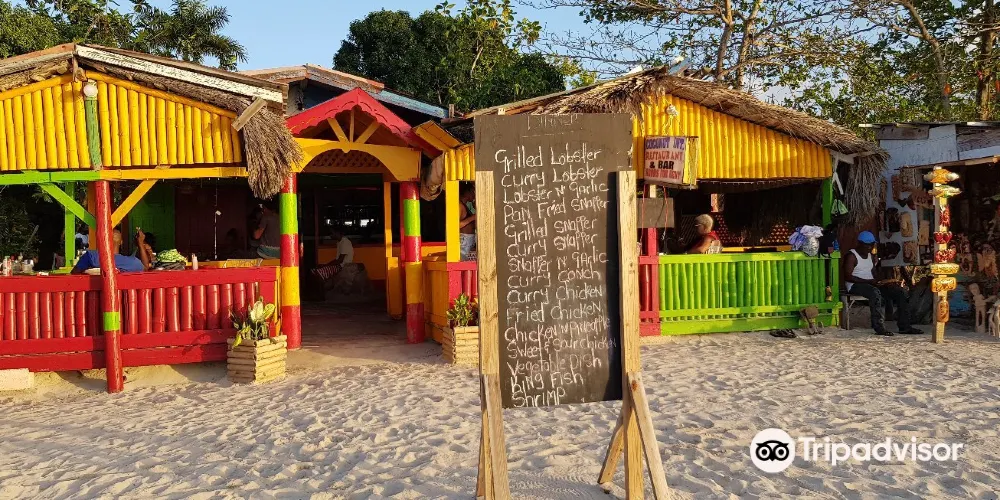 Grilled Lobster
Curry Lobster
Lobster N' garlic
Pan Fried Snaffer
Grilled Snaffer
Curry Snaffer
Snaffer N garlic
Curry Conch
Curry Chicken
Fried Chicken
Chicken N Pineapple
Sweet & Sour Chicken
Vegetable Dish
King Fish
Shrimp
COCONUT JOE
RESTAURANT
& BAR
Tripadvisor